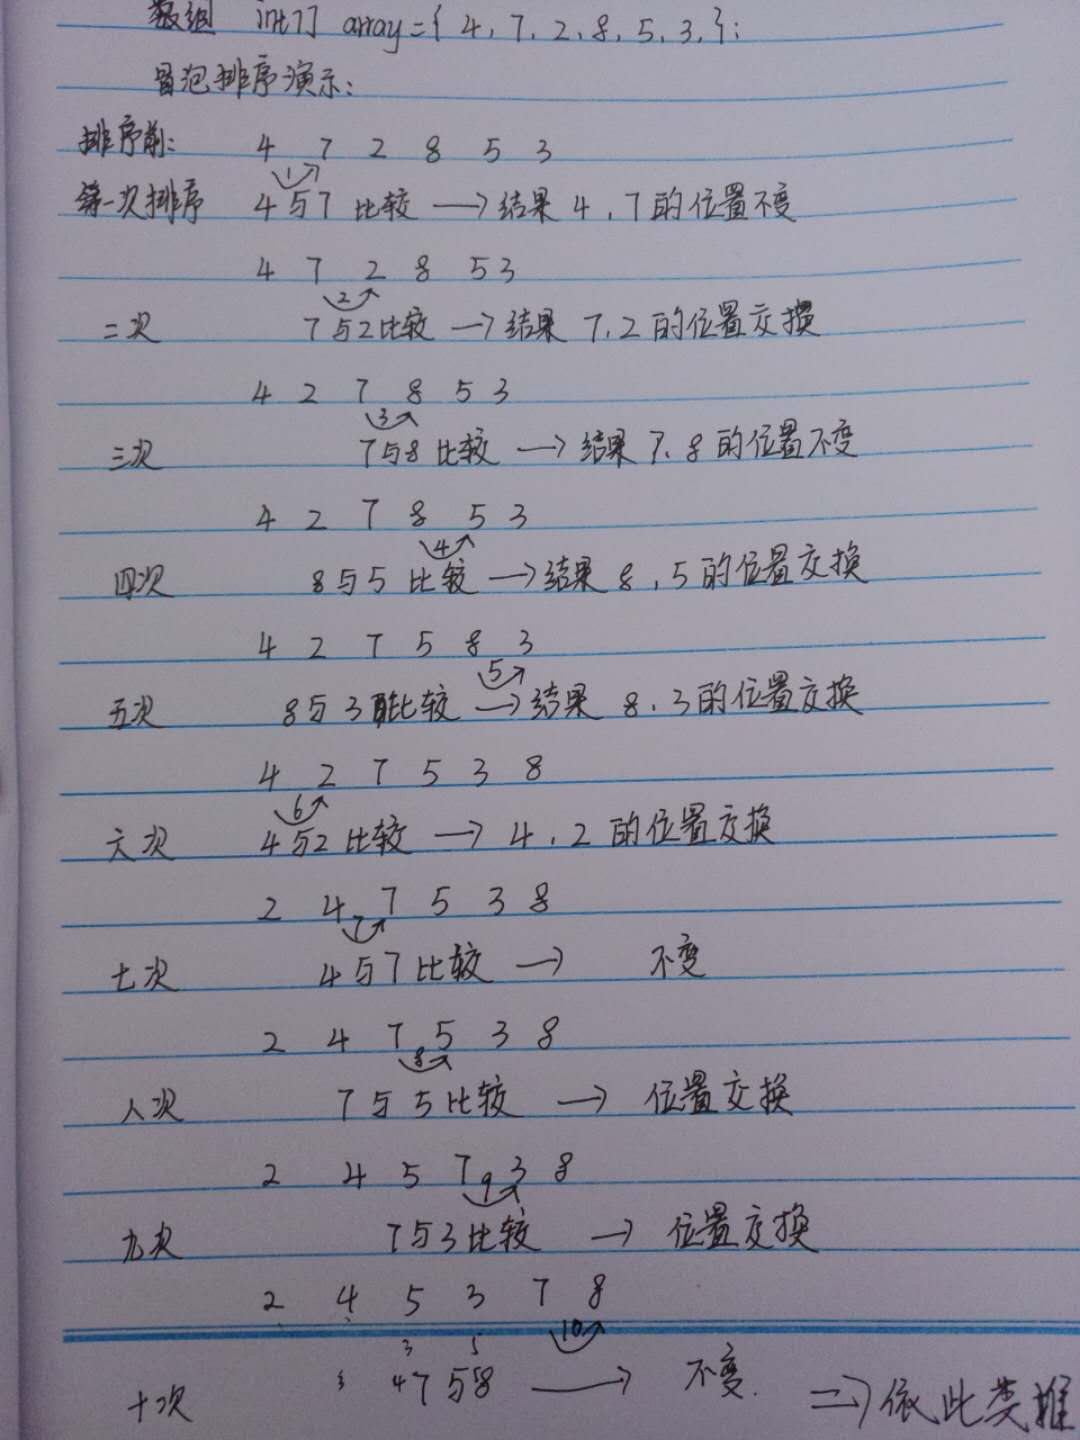 数组 int[] array={ 4, 7, 2, 8, 5, 3, };
冒泡排序演示:
排序前: 4 7 2 8 5 3
1
第一次排序 4与7 比较 → 结果 4,7的位置不变
4 7 2 8 5 3
2
二次 7与2比较 → 结果 7.2的位置交换
4 2 7 8 5 3
3
三次 7与8比较 → 结果 7.8的位置不变
4 2 7 8 5 3
4
四次 8与5比较 → 结果 8,5的位置交换
4 2 7 5 8 3
5
五次 8与3比较 → 结果 8.3的位置交换
4 2 7 5 3 8
6
六次 4与2比较 → 4,2的位置交换
2 4 7 5 3 8
7
七次 4与7比较 → 不变
2 4 7 5 3 8
8
八次 7与5比较 → 位置交换
2 4 5 7 3 8
9
九次 7与3比较 → 位置交换
2 4 5 3 7 8
3 5 10
十次 47与58 → 不变. => 依此类推